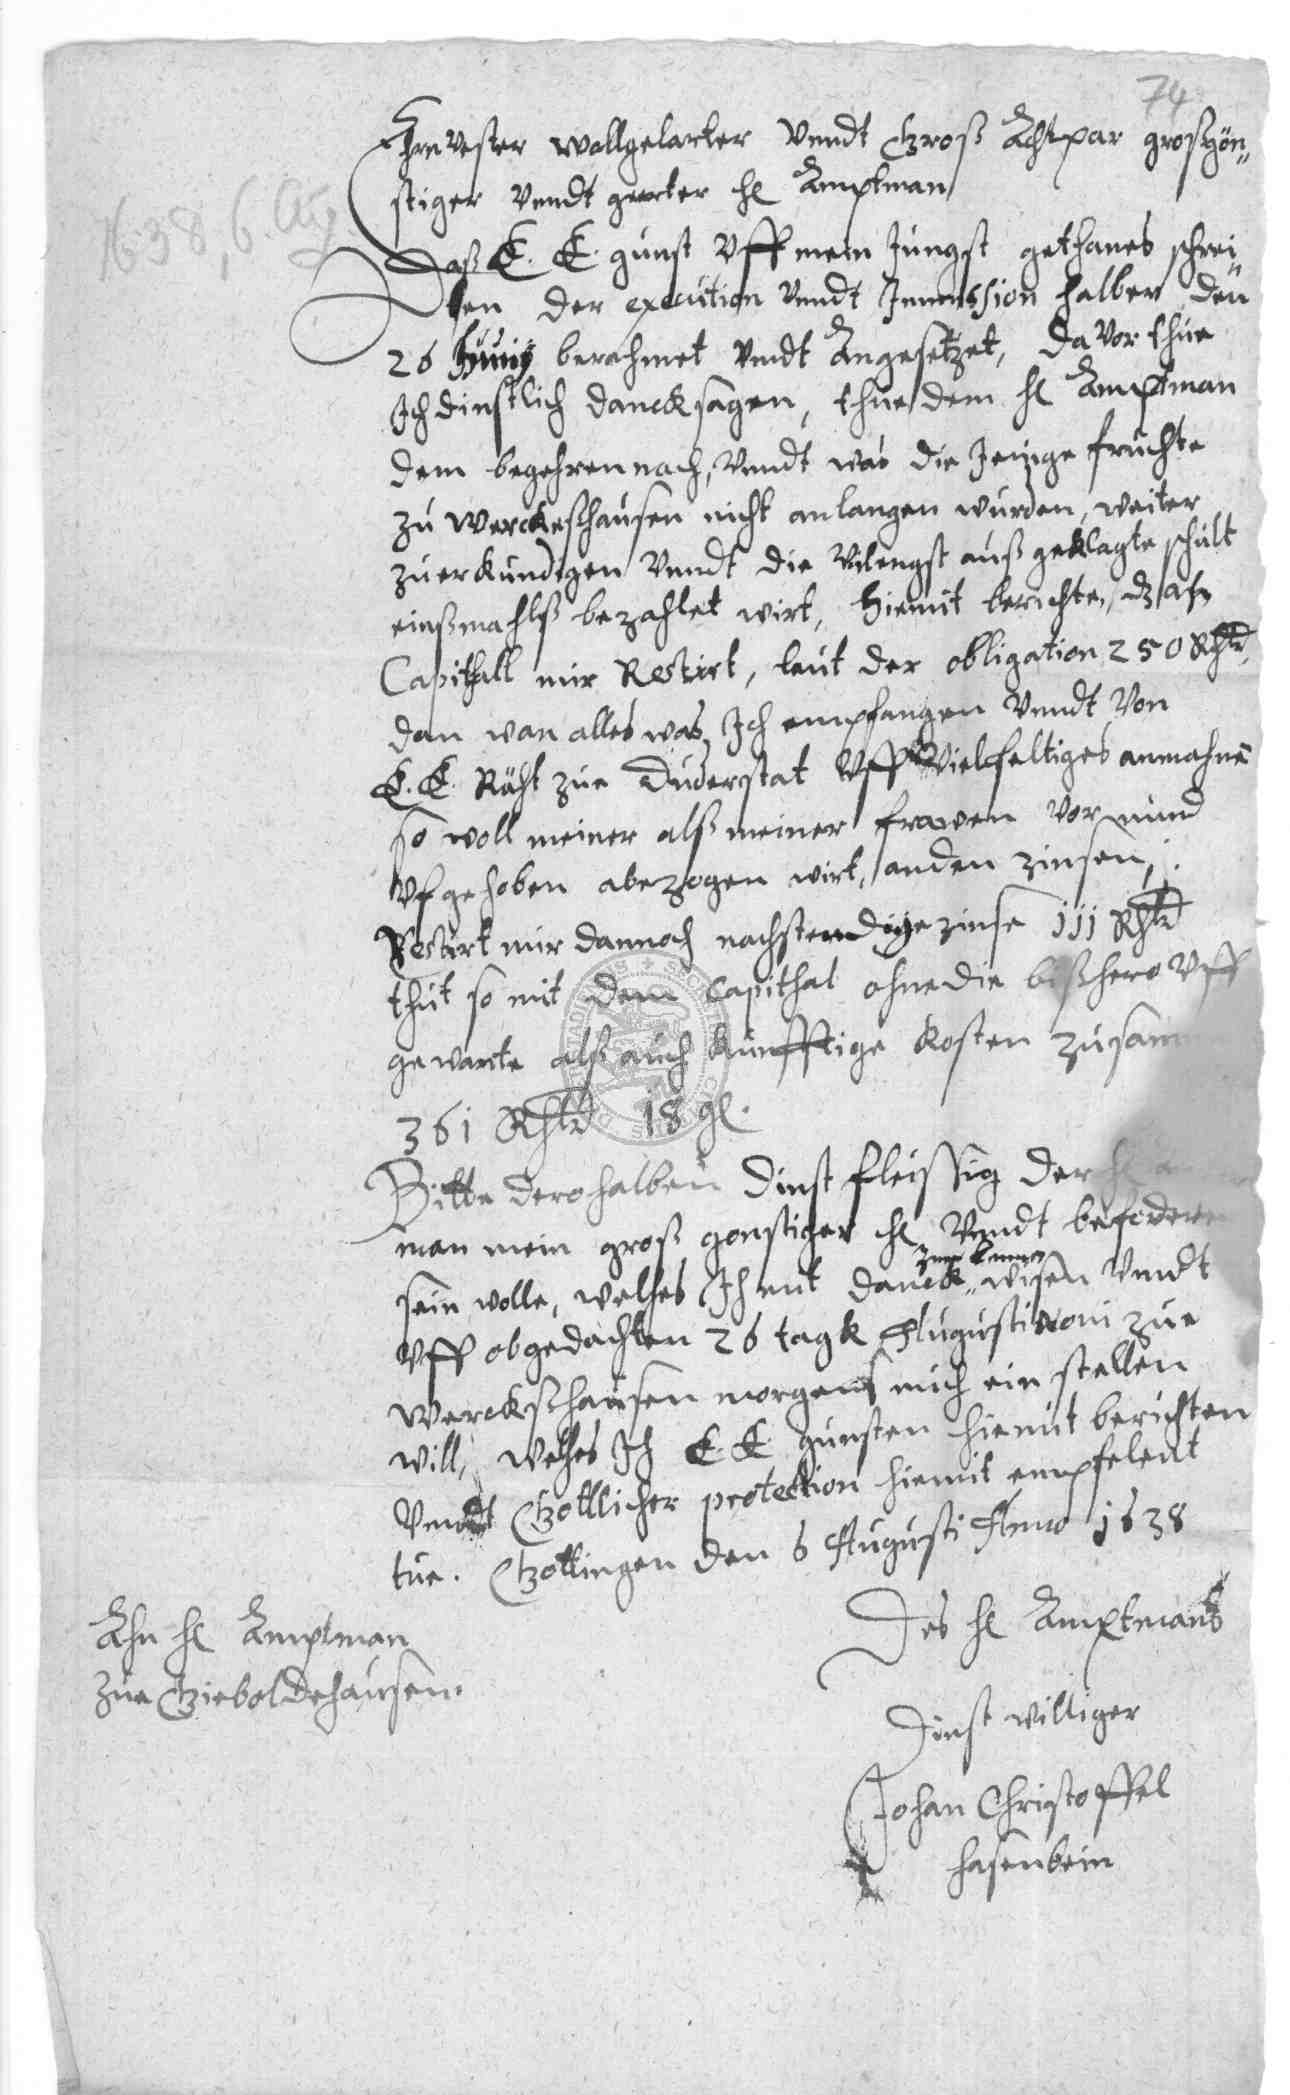 74
1638, 6. Aug
Ehrnvester Wollgelarter Vnndt Groß Achtpar großgön„
stiger Vnndt geerter H Amptman
Daß E. E. gunst Vff mein Jungst gethanes schrei„
ben der execution Vnndt Immission halber den
26 berahmet Vndt Angesetzet, da Vor thue
Ich dinstlich dancksagen, thue dem H Amptman
dem begehren nach, Vnndt was die Jenige fruchte
zu Werckeshausen nicht anlangen wurden, weiter
zuerkundigen Vnndt die Vilengst auß geklagte schult
einßmahlß bezahlet wirt, Hiemit berichte, dz ahn
Capithall mir Restirt, laut der obligation 250 Rthlr,
dan wan alles was Ich empfangen Vnndt Von
E. E. Räht zue Duderstat Vff Vielfeltiges anmahnē
so woll meiner alß meiner frawen Vormund
Vfgehoben abezogen wirt, anden zinsen,
Restirt mir dannoch nachstendige zinse 111 Rthlr
thut so mit dem Capithal ohne die bißhero Vff
gewante alß auch kunfftige kosten zusam
361 Rthlr 18 gl.
Bitte derohalben dinst fleissig der H
man mein groß gonstiger H Vnndt beforderer
sein wolle, welches Ich mit danck„ wisen Vnndt
Vff obgedachten 26 tagk Augusti zue
Werckßhausen morgens mich ein stellen
will, welches Ich E. E. gunsten hiemit berichten
Vnndt Gottlicher protection hiemit empfelent
tue. Gottingen den 6 Augusti Anno 1638
Ahn H Amptman
zue Gieboldehausen.
Des H Amptmanß
Dinst williger
Johan Christoffel
Hasenbein